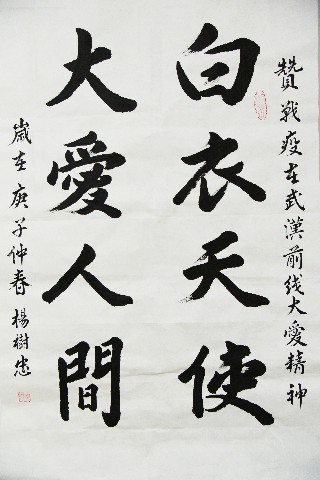 贊战疫在武漢前线大爱精神
白衣天使
大愛人間
歲在庚子仲春楊樹忠